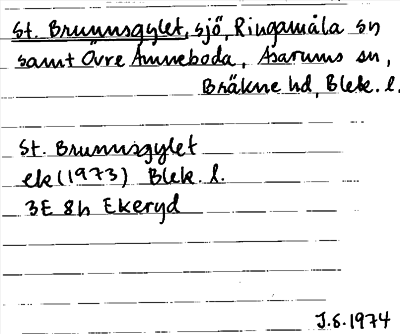 St. Brunnsgylet, sjö, Ringamåla sn
samt Övre Ämneboda, Asarums sn,
Bräkne hd, Blek. l.
St. Brunnsgylet
ek (1973) Blek. l.
3E 8h Ekeryd
J.S. 1974